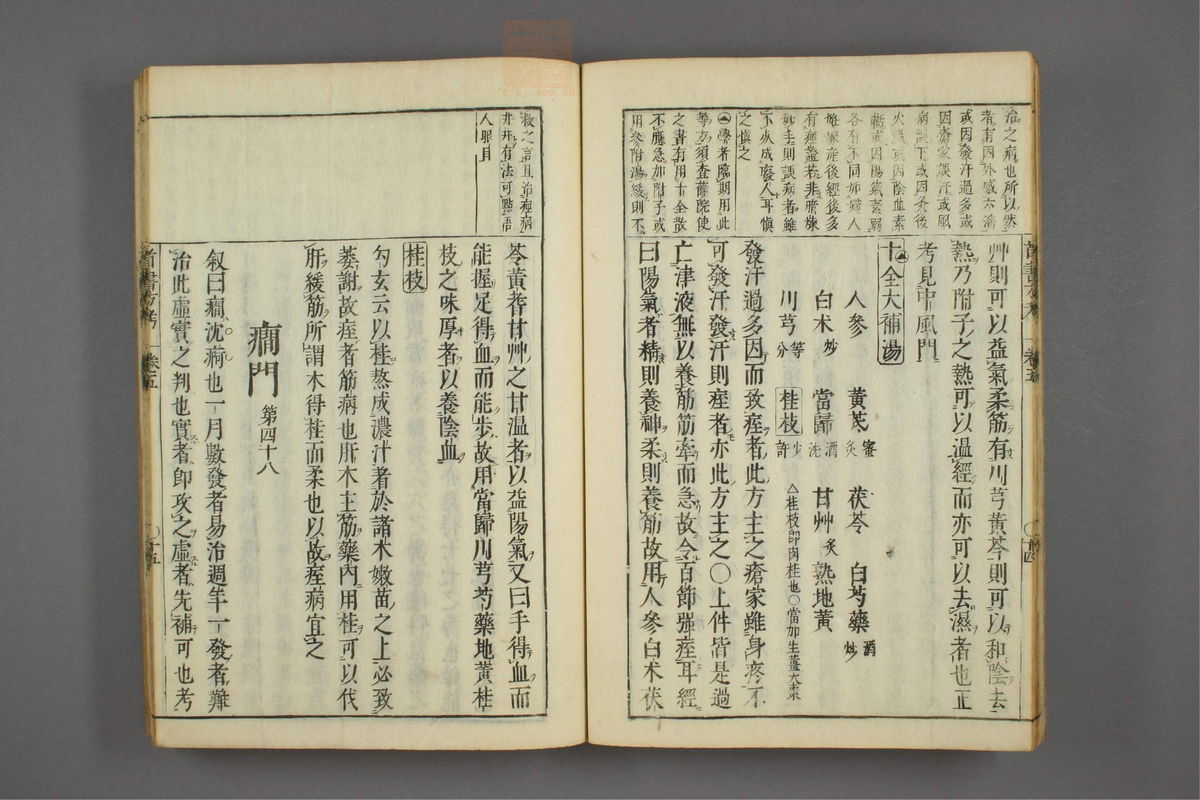 治之痾也所以然
者有因外感六滛
或因發汗過多或
因瘡家誤汗或風
病誤下或因灸後
火熾或因陰血素
虧或因陽氣素弱
各有不同如婦人
難產後經後多
有痙證若非精煉
妙手則誤病者雖
不死成廢人耳慎
之慎之
學者臨期用此
等方須查薛院使
之書有用十全散
不應急加附子或
用參附湯緩則不
艸則可以益氣柔筋有川芎黃芩則可以和陰去
熱乃附子之熱可以温經而亦可以去濕者也正
考見中風門
十全大補湯
人參 黃芪蜜炙 茯苓 白芍藥酒炒
白术炒 當歸酒洗 甘艸炙 熟地黃
川芎等分 桂枝少許 △桂枝即肉桂也○當加生薑大棗
發汗過多因而致痙者此方主之瘡家雖身疼不
可發汗發汗則痙者亦此方主之○上件皆是過
亡津液無以養筋筋牽而急故令百節强痙耳經
曰陽氣者精則養神柔則養筋故用人參白朮茯
首書方考 卷五 十四
救之言且治痙病
井井有法可點語
人眼目
苓黃茋甘艸之甘温者以益陽氣又曰手得血而
能握足得血而能步故用當歸川芎芍藥地黃桂
枝之味厚者以養陰血
桂枝
勾玄云以桂熬成濃汁者於諸木嫩苗之上必致
萎謝故痙者筋病也肝木主筋藥內用桂可以伐
肝緩筋所謂木得桂而柔也以故痙病宜之
癎門 第四十八
叙曰癎沈痾也一月數發者易治週年一發者難
治此虛實之判也實者即攻之虛者先補可也考
首書方考 卷五 十五